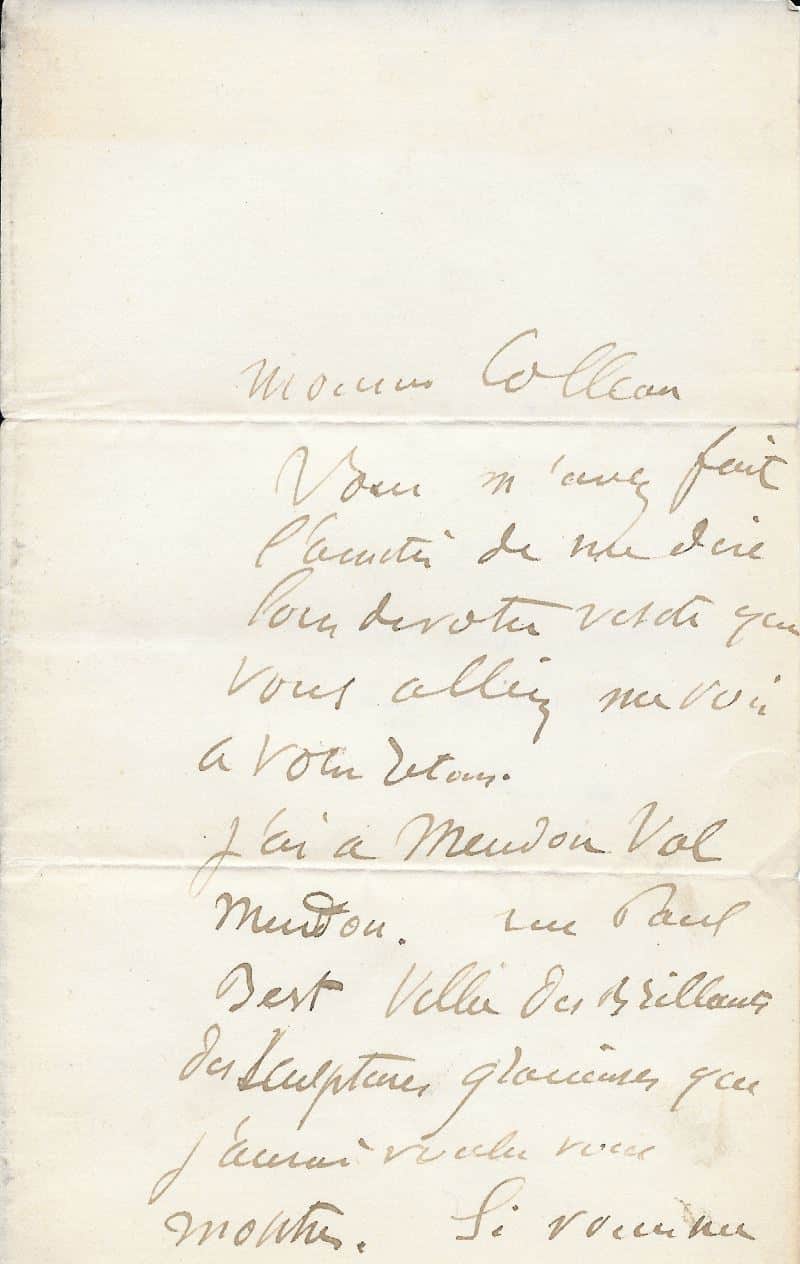 Monsieur Colleau
Vous m'avez fait
l'amitié de me dire
lors de votre visite que
vous alliez me voir
a votre retour.
J'ai a Meudon Val
Meudon. rue Paul
Bert Villa des Brillants
des sculptures que
j'aurai voulu vous
montrer. Si vous me